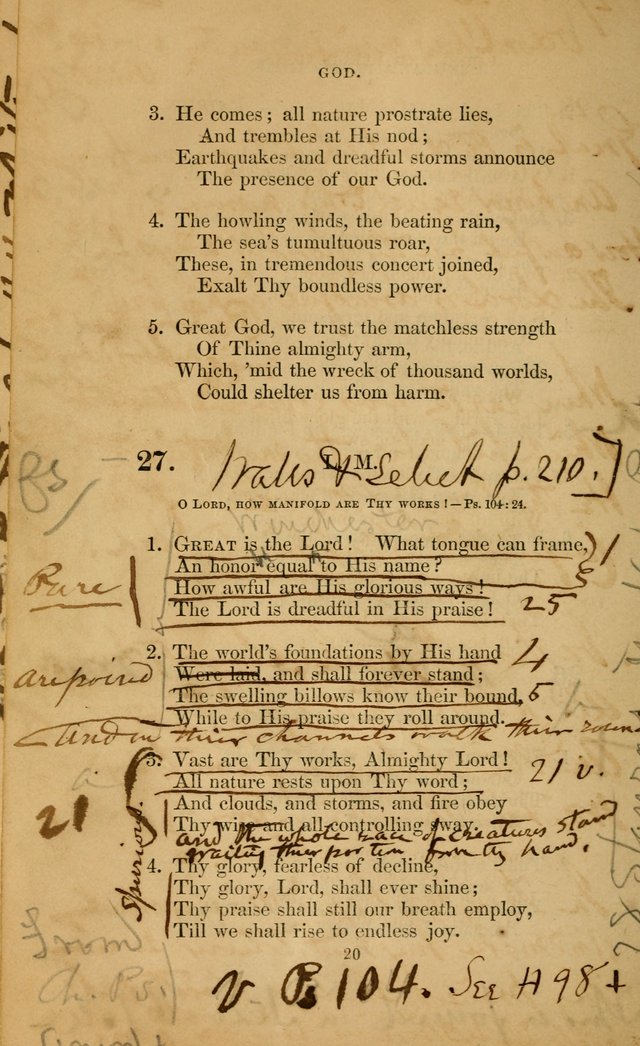 GOD.
3. He comes; all nature prostrate lies,
And trembles at His nod;
Earthquakes and dreadful storms announce
The presence of our God.
4. The howling winds, the beating rain,
The sea's tumultuous roar,
These, in tremendous concert joined,
Exalt Thy boundless power.
5. Great God, we trust the matchless strength
Of Thine almighty arm,
Which, 'mid the wreck of thousand worlds,
Could shelter us from harm.
27. L. M. Watts & Select p. 210.]
O LORD, HOW MANIFOLD ARE THY WORKS!—Ps. 104: 24.
Winchester
1. GREAT is the Lord! What tongue can frame, 1
An honor equal to His name?
Pure
How awful are His glorious ways!
The Lord is dreadful in His praise! 25
2. The world's foundations by His hand 4
are poised
Were laid, and shall forever stand;
The swelling billows know their bound, 5
While to His praise they roll around.
And in their channels walk their round
3. Vast are Thy works, Almighty Lord!
All nature rests upon Thy word; 21 v.
And clouds, and storms, and fire obey
21
Thy wise and all-controlling sway.
and the whole race of creatures stand
waiting their portion from thy hand.
Spurious.
4. Thy glory, fearless of decline,
Thy glory, Lord, shall ever shine;
Thy praise shall still our breath employ,
Till we shall rise to endless joy.
20
From
Ch. Ps.
v Ps 104. See H 98+